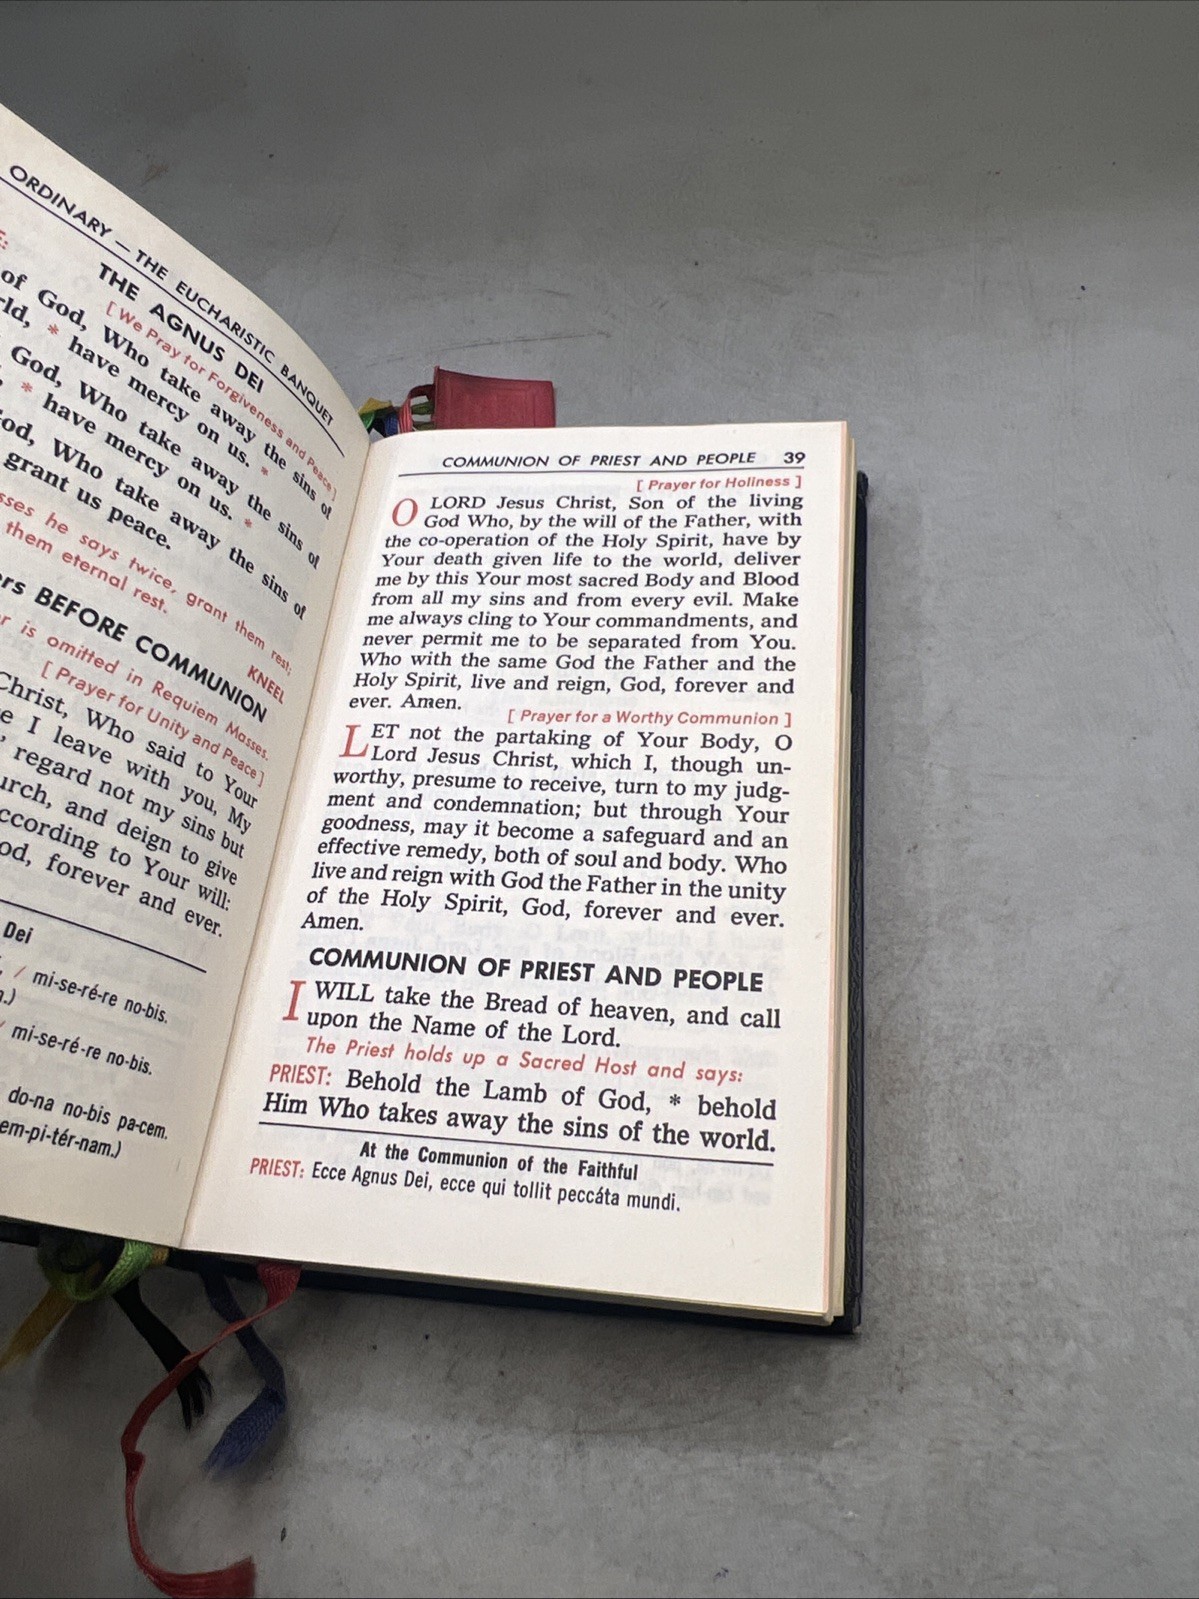 ORDINARY — THE EUCHARISTIC BANQUET
THE AGNUS DEI
[ We Pray for Forgiveness and Peace ]
of God, Who take away the sins of
* have mercy on us. *
God, Who take away the sins of
* have mercy on us. *
Who take away the sins of
grant us peace.
he says twice, grant them rest;
them eternal rest.
KNEEL
BEFORE COMMUNION
is omitted in Requiem Masses.
[ Prayer for Unity and Peace ]
Christ, Who said to Your
I leave with you, My
regard not my sins but
and deign to give
according to Your will:
forever and ever.
Dei
/ mi-se-ré-re no-bis.
/ mi-se-ré-re no-bis.
do-na no-bis pa-cem.
em-pi-tér-nam.)
COMMUNION OF PRIEST AND PEOPLE 39
[ Prayer for Holiness ]
O LORD Jesus Christ, Son of the living
God Who, by the will of the Father, with
the co-operation of the Holy Spirit, have by
Your death given life to the world, deliver
me by this Your most sacred Body and Blood
from all my sins and from every evil. Make
me always cling to Your commandments, and
never permit me to be separated from You.
Who with the same God the Father and the
Holy Spirit, live and reign, God, forever and
ever. Amen.
[ Prayer for a Worthy Communion ]
LET not the partaking of Your Body, O
Lord Jesus Christ, which I, though un-
worthy, presume to receive, turn to my judg-
ment and condemnation; but through Your
goodness, may it become a safeguard and an
effective remedy, both of soul and body. Who
live and reign with God the Father in the unity
of the Holy Spirit, God, forever and ever.
Amen.
COMMUNION OF PRIEST AND PEOPLE
I WILL take the Bread of heaven, and call
upon the Name of the Lord.
The Priest holds up a Sacred Host and says:
PRIEST: Behold the Lamb of God, * behold
Him Who takes away the sins of the world.
At the Communion of the Faithful
PRIEST: Ecce Agnus Dei, ecce qui tollit peccáta mundi.